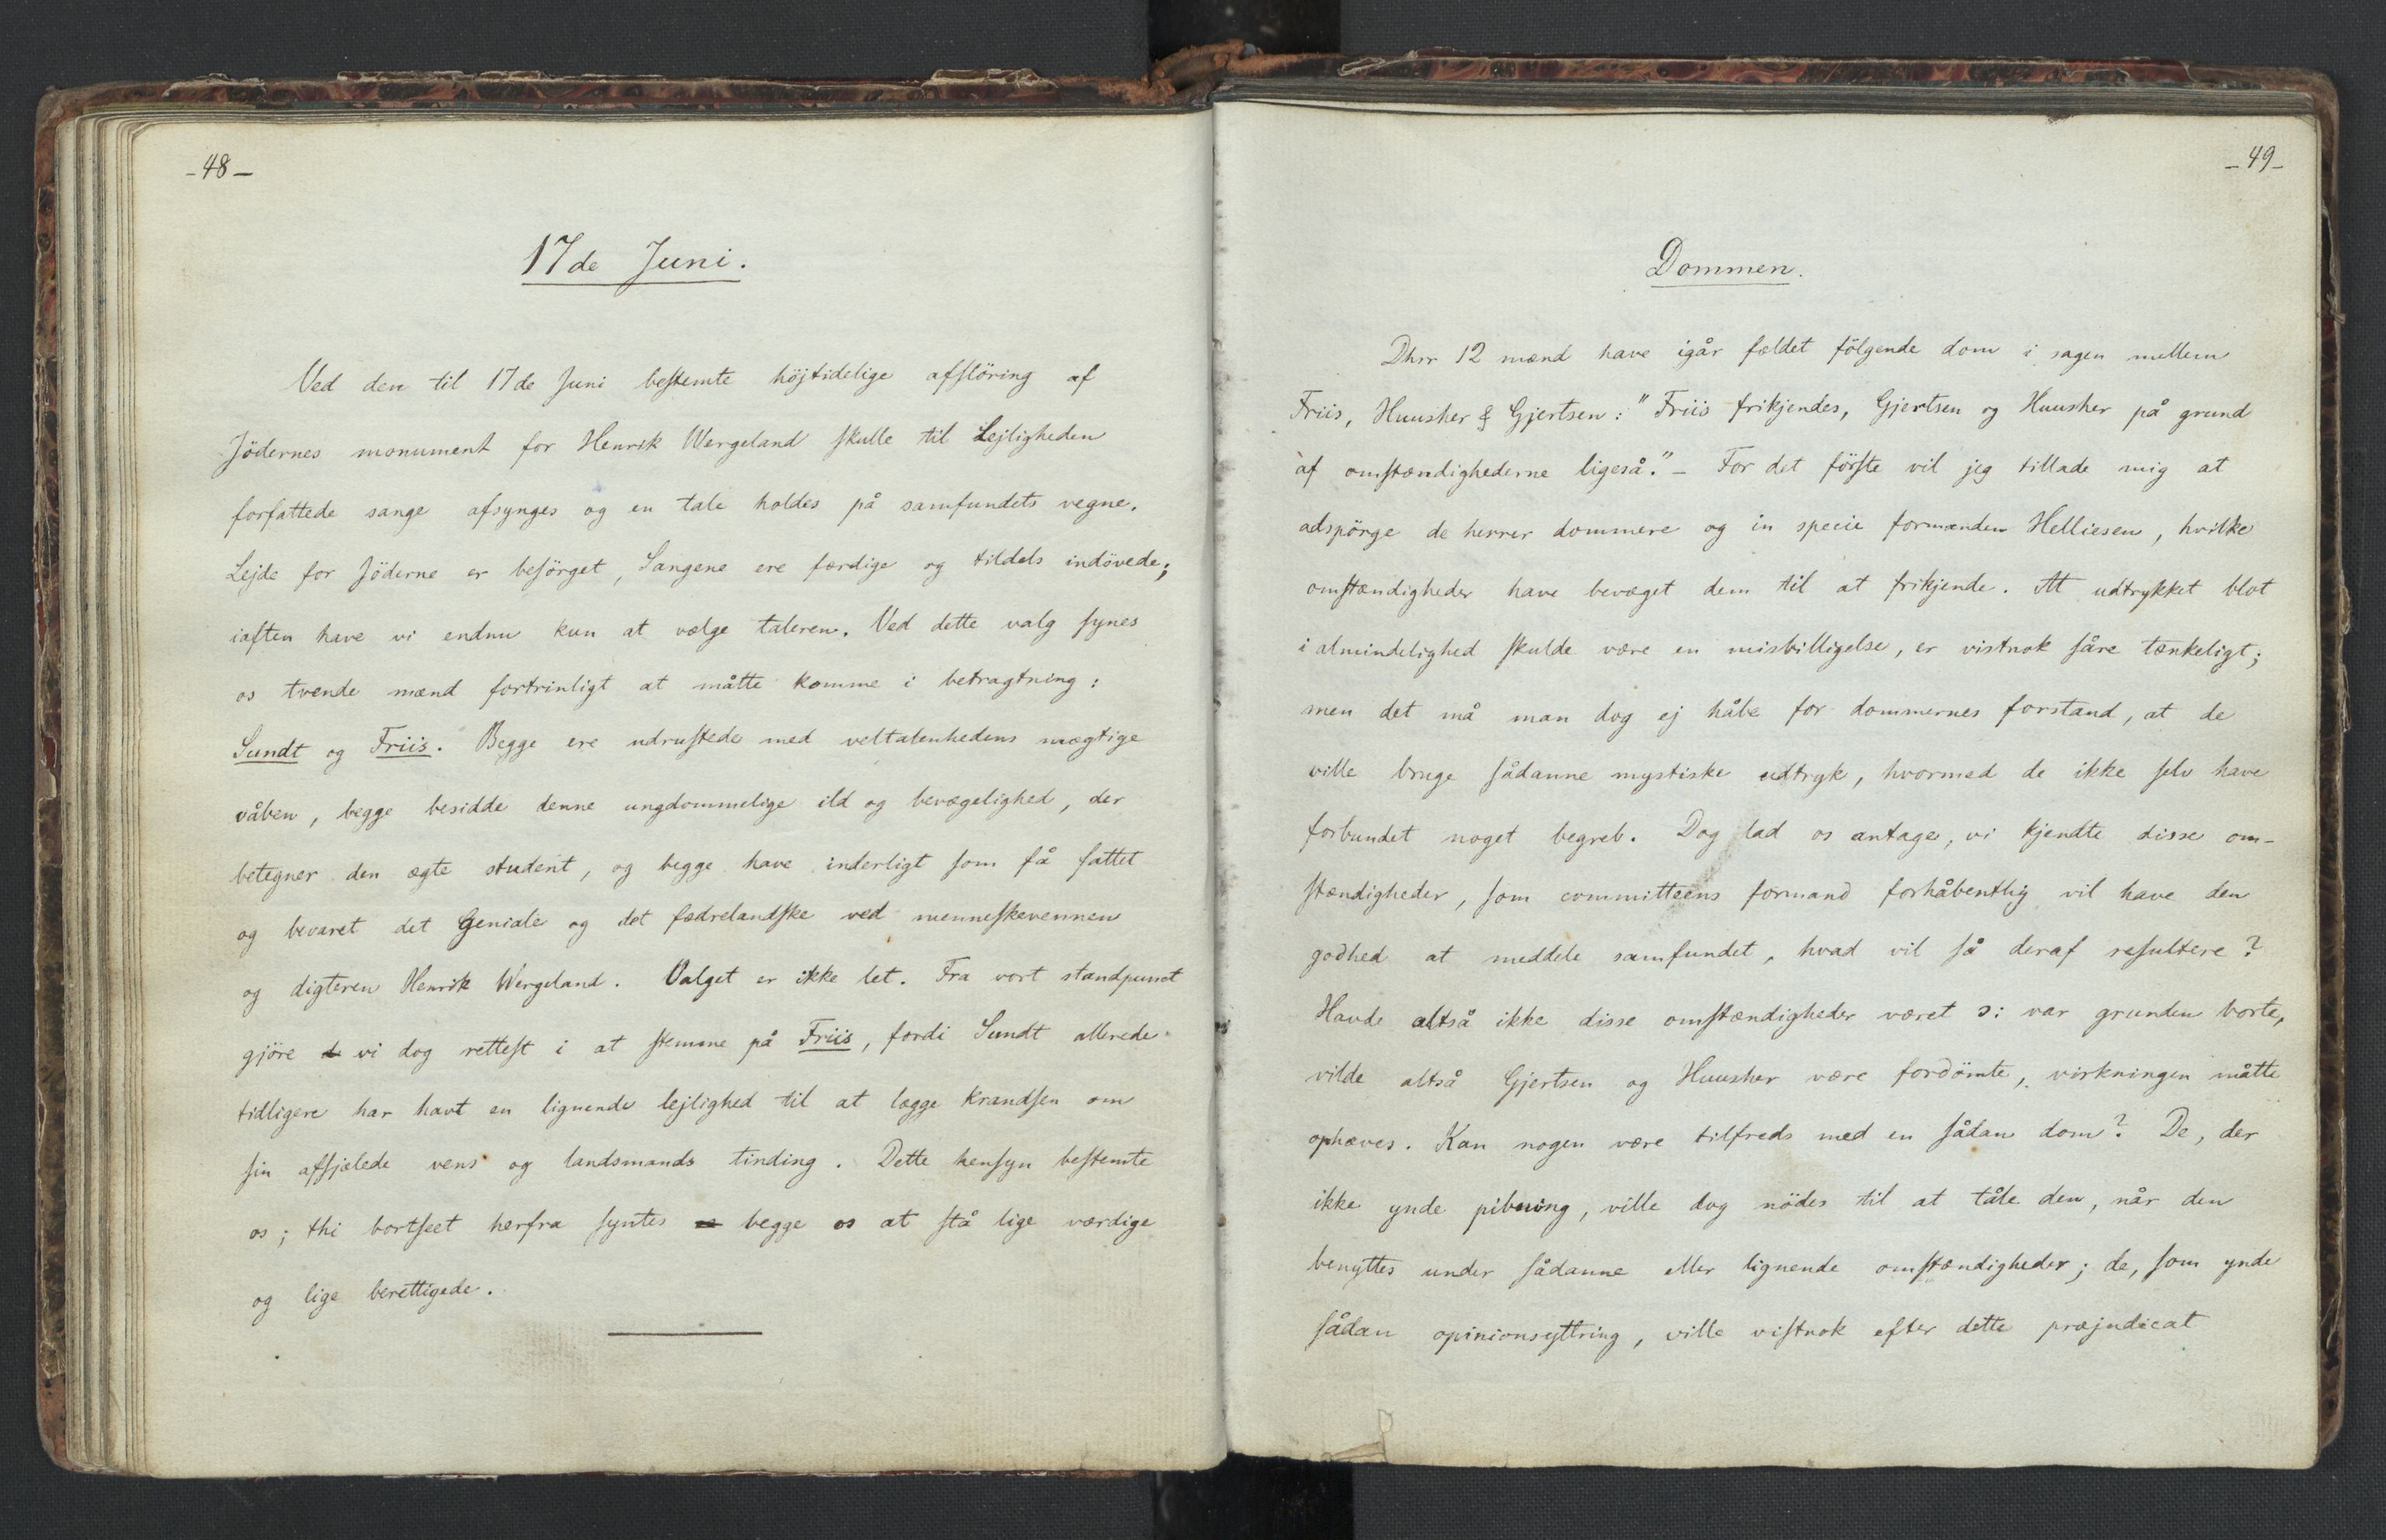 -48-
17de Juni.
Ved den til 17de Juni bestemte höjtidelige afslöring af
Jödernes monument for Henrik Wergeland skulle til Lejligheden
forfattede sange afsynges og en tale holdes på samfundets vegne.
Lejde for Jöderne er besörget, Sangene ere færdige og tildels indövede;
iaften have vi endnu kun at vælge taleren. Ved dette valg synes
os tvende mænd fortrinligt at måtte komme i betragtning:
Sundt og Friis. Begge ere udrustede med veltalenhedens mægtige
våben, begge besidde denne ungdommelige ild og bevægelighed, der
betegner den ægte student, og begge have inderligt som få fattet
og bevaret det Geniale og det fædrelandske ved menneskevennen
og digteren Henrik Wergeland. Valget er ikke let. Fra vort standpunct
gjöre vi dog rettest i at stemme på Friis, fordi Sundt allerede
tidligere har havt en lignende lejlighed til at lægge krandsen om
sin afsjælede vens og landsmands tinding. Dette hensyn bestemte
os; thi bortseet herfra syntes begge os at stå lige værdige
og lige berettigede.
-49-
Dommen.
Dhrr 12 mænd have igår fældet fölgende dom i sagen mellem
Friis, Huusher & Gjertsen: "Friis frikjendes, Gjertsen og Huusher på grund
af omstændighederne ligeså." - For det förste vil jeg tillade mig at
adspörge de herrer dommere og in specie formanden Helliesen, hvilke
omstændigheder have bevæget dem til at frikjende. At udtrykket blot
i almindelighed skulde være en misbilligelse, er vistnok såre tænkeligt;
men det må man dog ej håbe for dommernes forstand, at de
ville bruge sådanne mystiske udtryk, hvormed de ikke selv have
forbundet noget begreb. Dog lad os antage, vi kjendte disse om-
stændigheder, som committeens formand forhåbentlig vil have den
godhed at meddele samfundet, hvad vil så deraf resultere?
Havde altså ikke disse omstændigheder været ɔ: var grunden borte,
vilde altså Gjertsen og Huusher være fordömte, virkningen måtte
ophæves. Kan nogen være tilfreds med en sådan dom? De, der
ikke ynde pibning, ville dog nödes til at tåle den, når den
benyttes under sådanne eller lignende omstændigheder; de, som ynde
sådan opinionsyttring, ville vistnok efter dette præjudicat